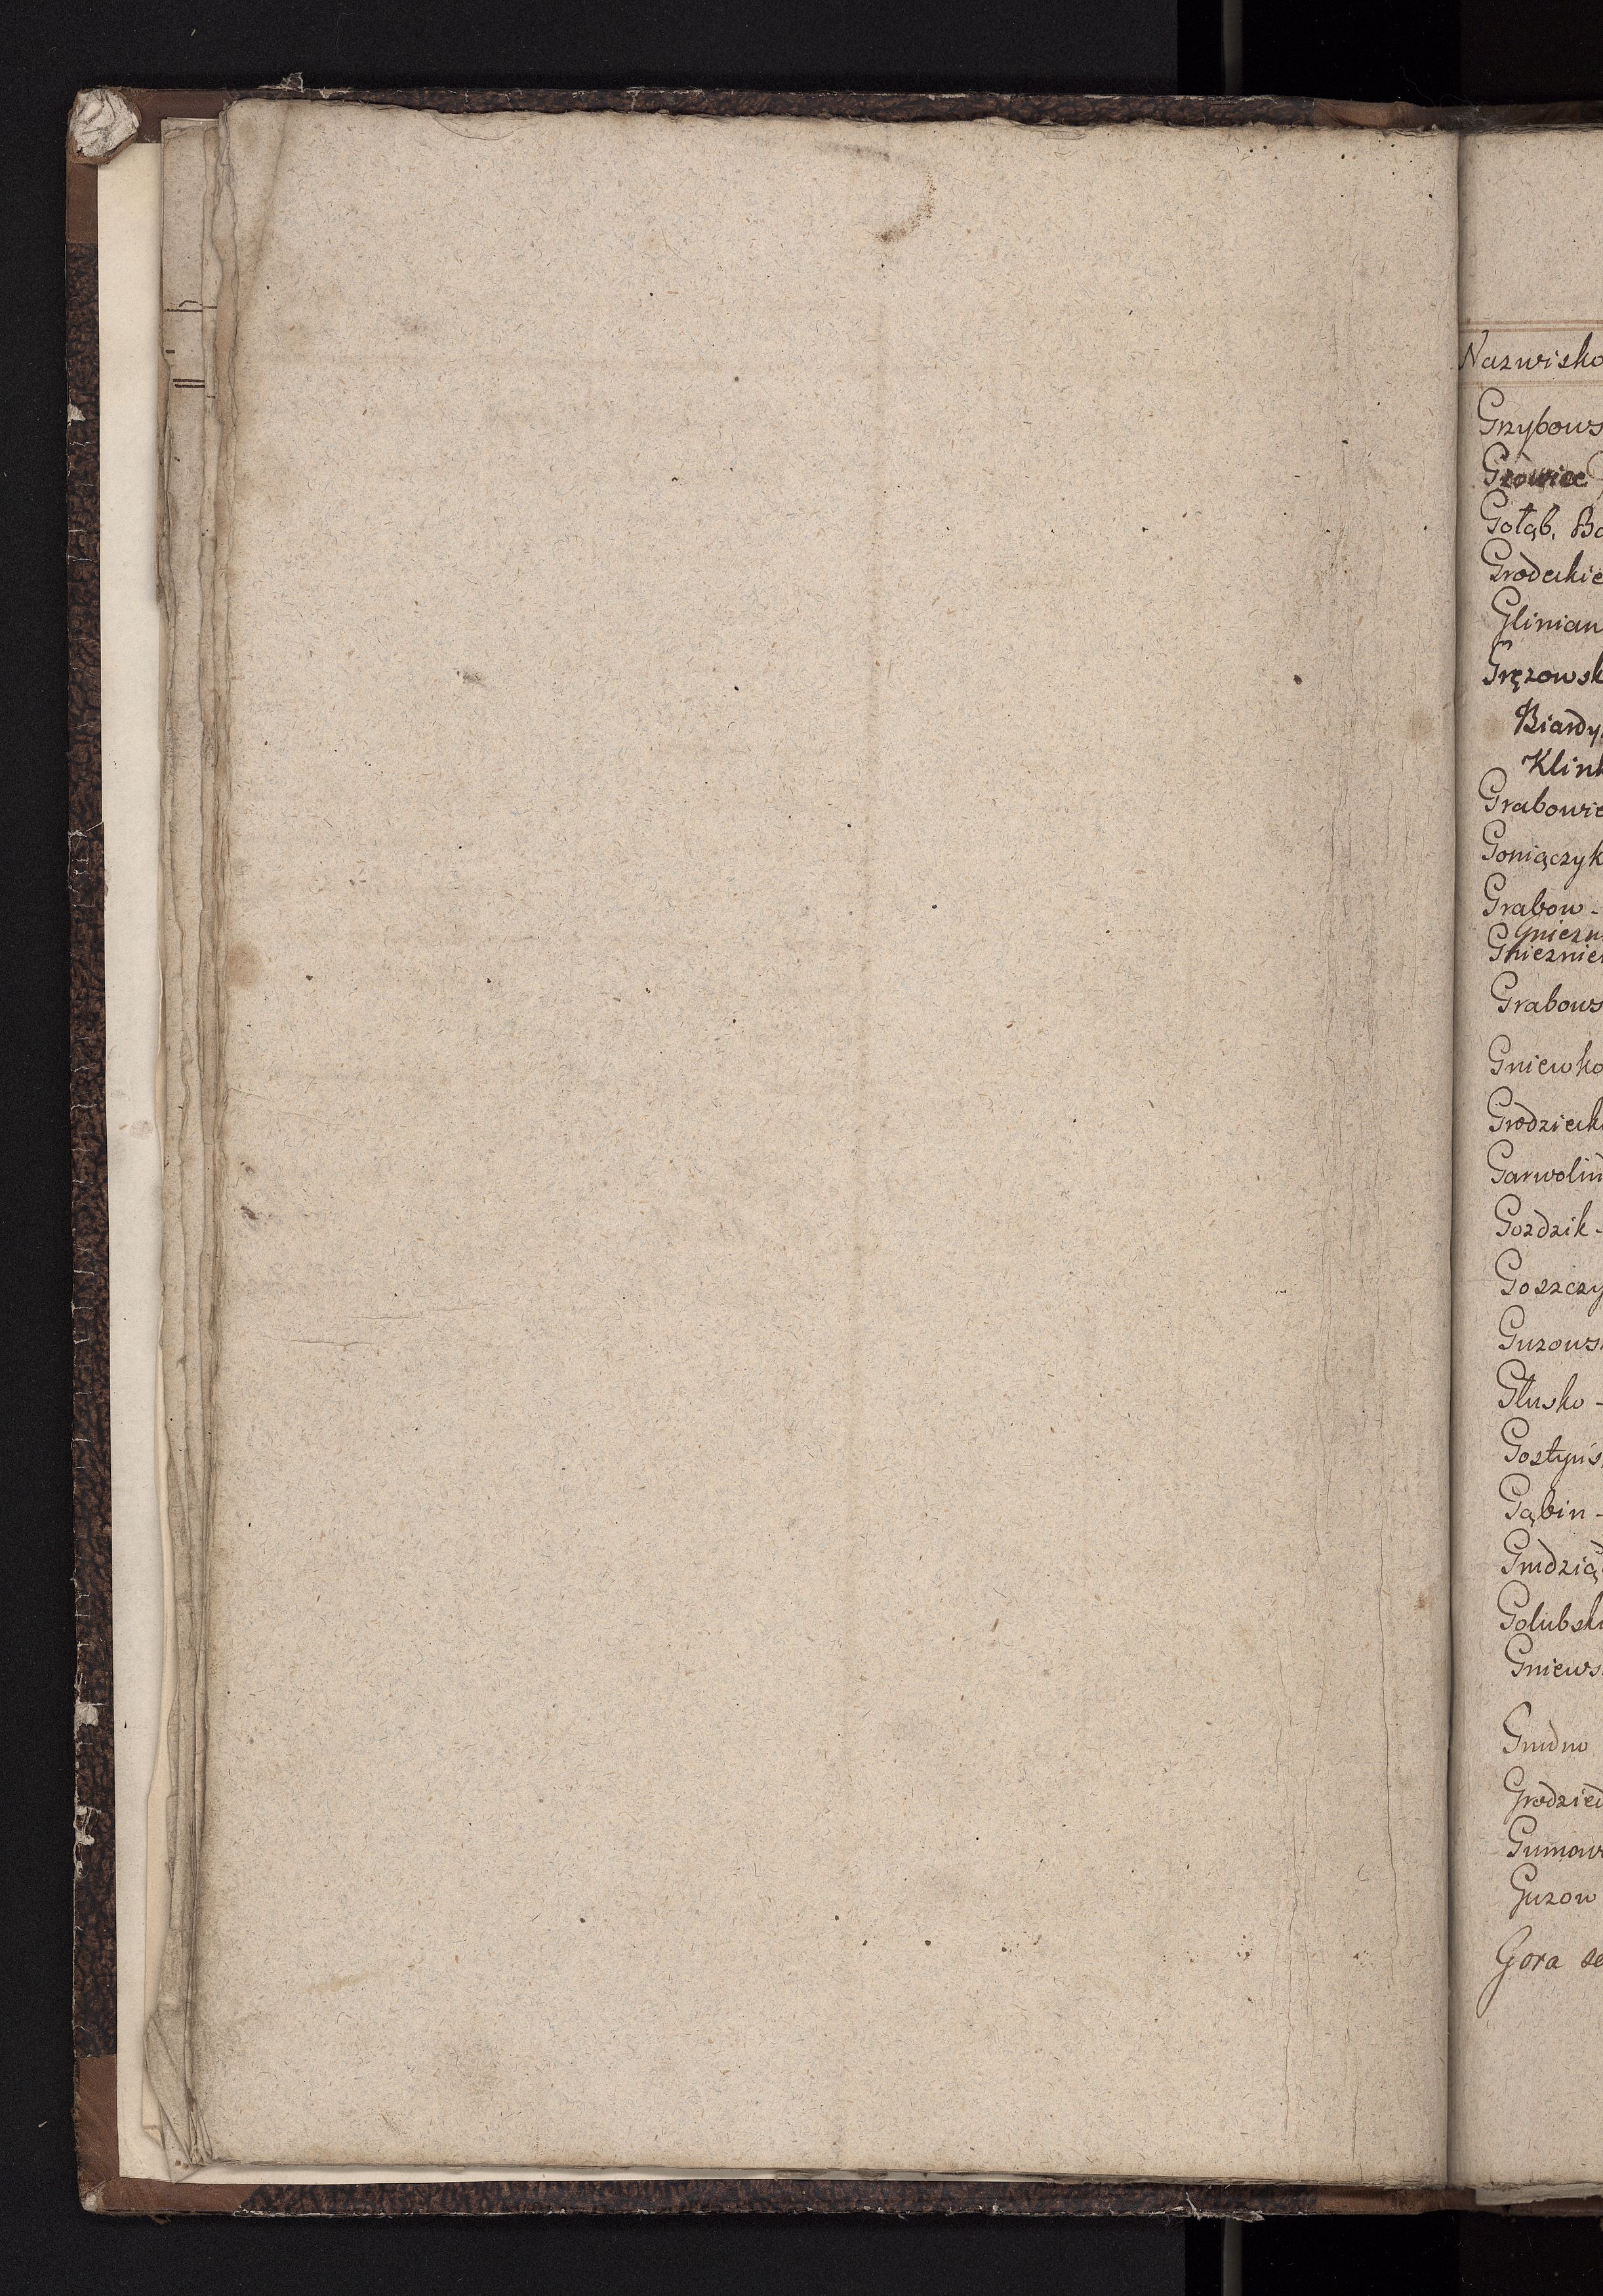 Nazwisko
Grzybows
Gołąb. Bo
Grodeckie
Glinian
Gręzowsk
Biardy
Klink
Grabowie
Goniączyk
Grabow -
Gniezn
Gnieznień
Grabows
Gniewko
Grodzieck
Garwolin
Gozdzik -
Goszczy
Guzows
Głusko -
Gostyńs
Gąbin -
Grudzią
Golubsk
Gniews
Grudno
Grodzied
Gumow
Guzow
Gora se